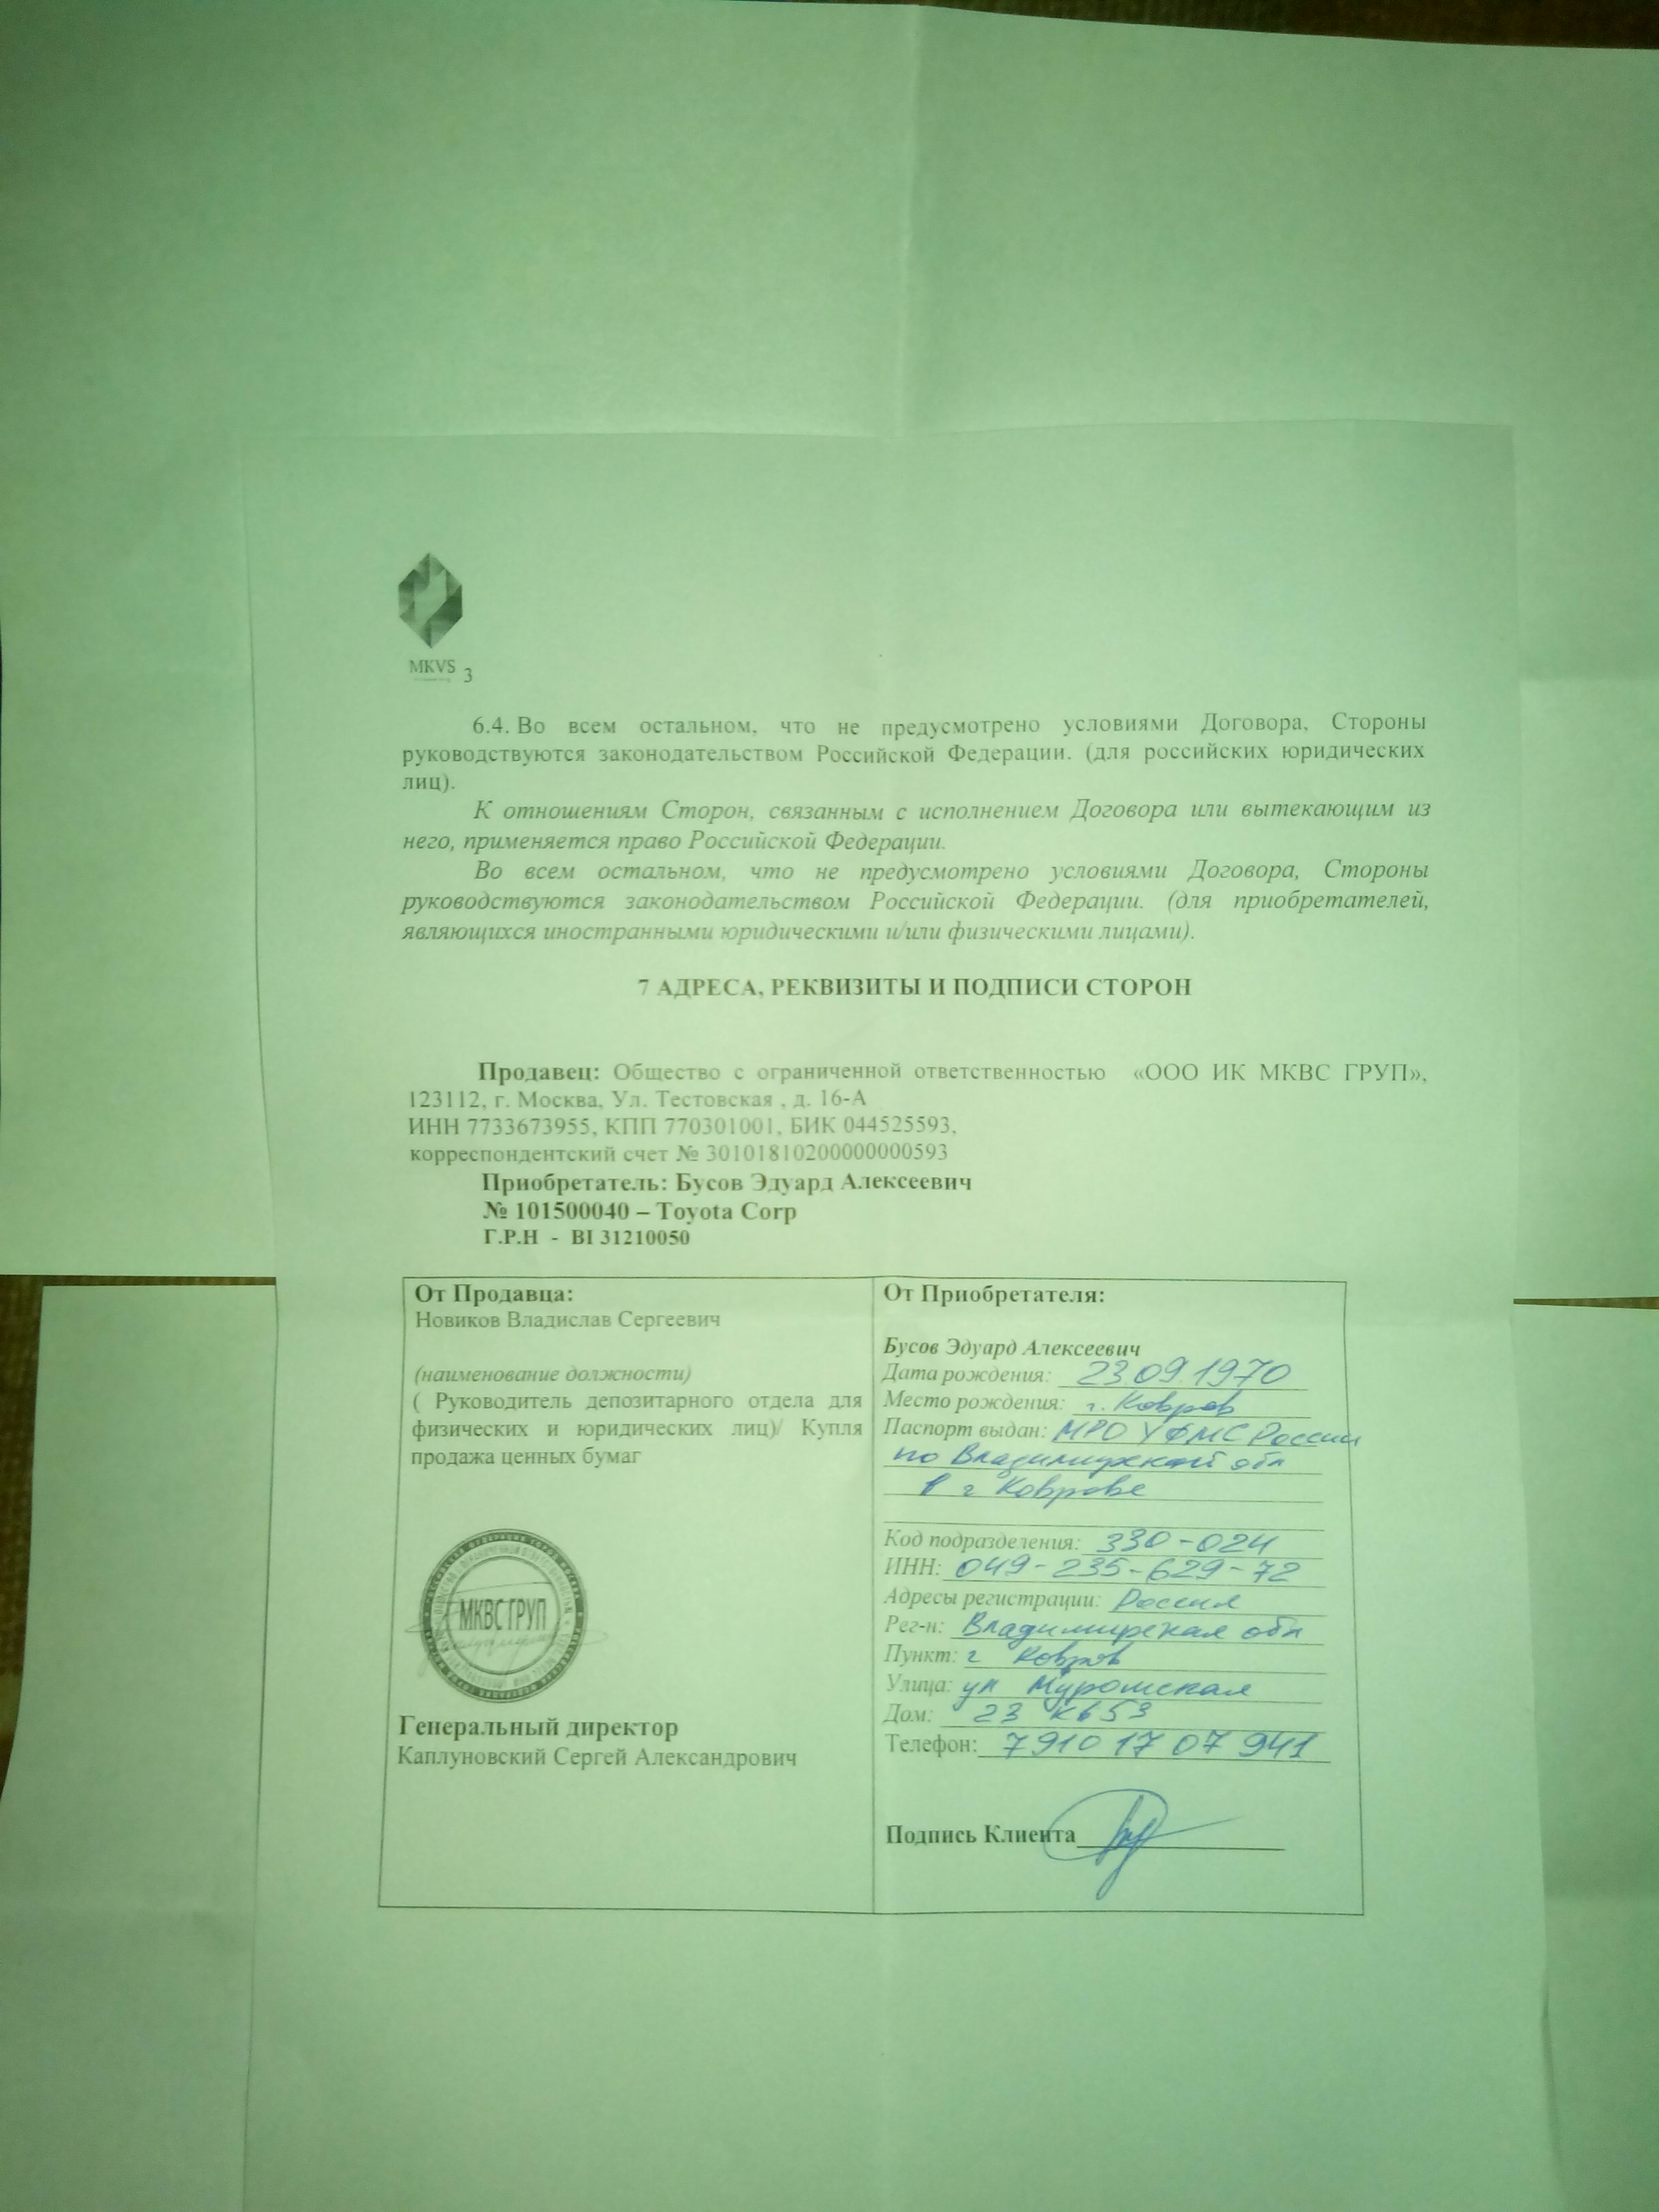 MKVS 3
6.4. Во всем остальном, что не предусмотрено условиями Договора, Стороны
руководствуются законодательством Российской Федерации. (для российских юридических
лиц).
К отношениям Сторон, связанным с исполнением Договора или вытекающим из
него, применяется право Российской Федерации.
Во всем остальном, что не предусмотрено условиями Договора, Стороны
руководствуются законодательством Российской Федерации. (для приобретателей,
являющихся иностранными юридическими и/или физическими лицами).
7 АДРЕСА, РЕКВИЗИТЫ И ПОДПИСИ СТОРОН
Продавец: Общество с ограниченной ответственностью «ООО ИК МКВС ГРУП»,
123112, г. Москва, Ул. Тестовская , д. 16-А
ИНН 7733673955, КПП 770301001, БИК 044525593,
корреспондентский счет № 30101810200000000593
Приобретатель: Бусов Эдуард Алексеевич
№ 101500040 – Toyota Corp
Г.Р.Н - BI 31210050
От Продавца:
Новиков Владислав Сергеевич
(наименование должности)
( Руководитель депозитарного отдела для
физических и юридических лиц)/ Купля
продажа ценных бумаг
МКВС ГРУП
Генеральный директор
Каплуновский Сергей Александрович
От Приобретателя:
Бусов Эдуард Алексеевич
Дата рождения: 23.09.1970
Место рождения: г. Ковров
Паспорт выдан: МРО УФМС России
по Владимирской обл
в г Коврове
Код подразделения: 330-024
ИНН: 049-235-629-72
Адресы регистрации: Россия
Рег-н: Владимирская обл
Пункт: г Ковров
Улица: ул Муромская
Дом: 23 кв 53
Телефон: 7910 17 07 941
Подпись Клиента